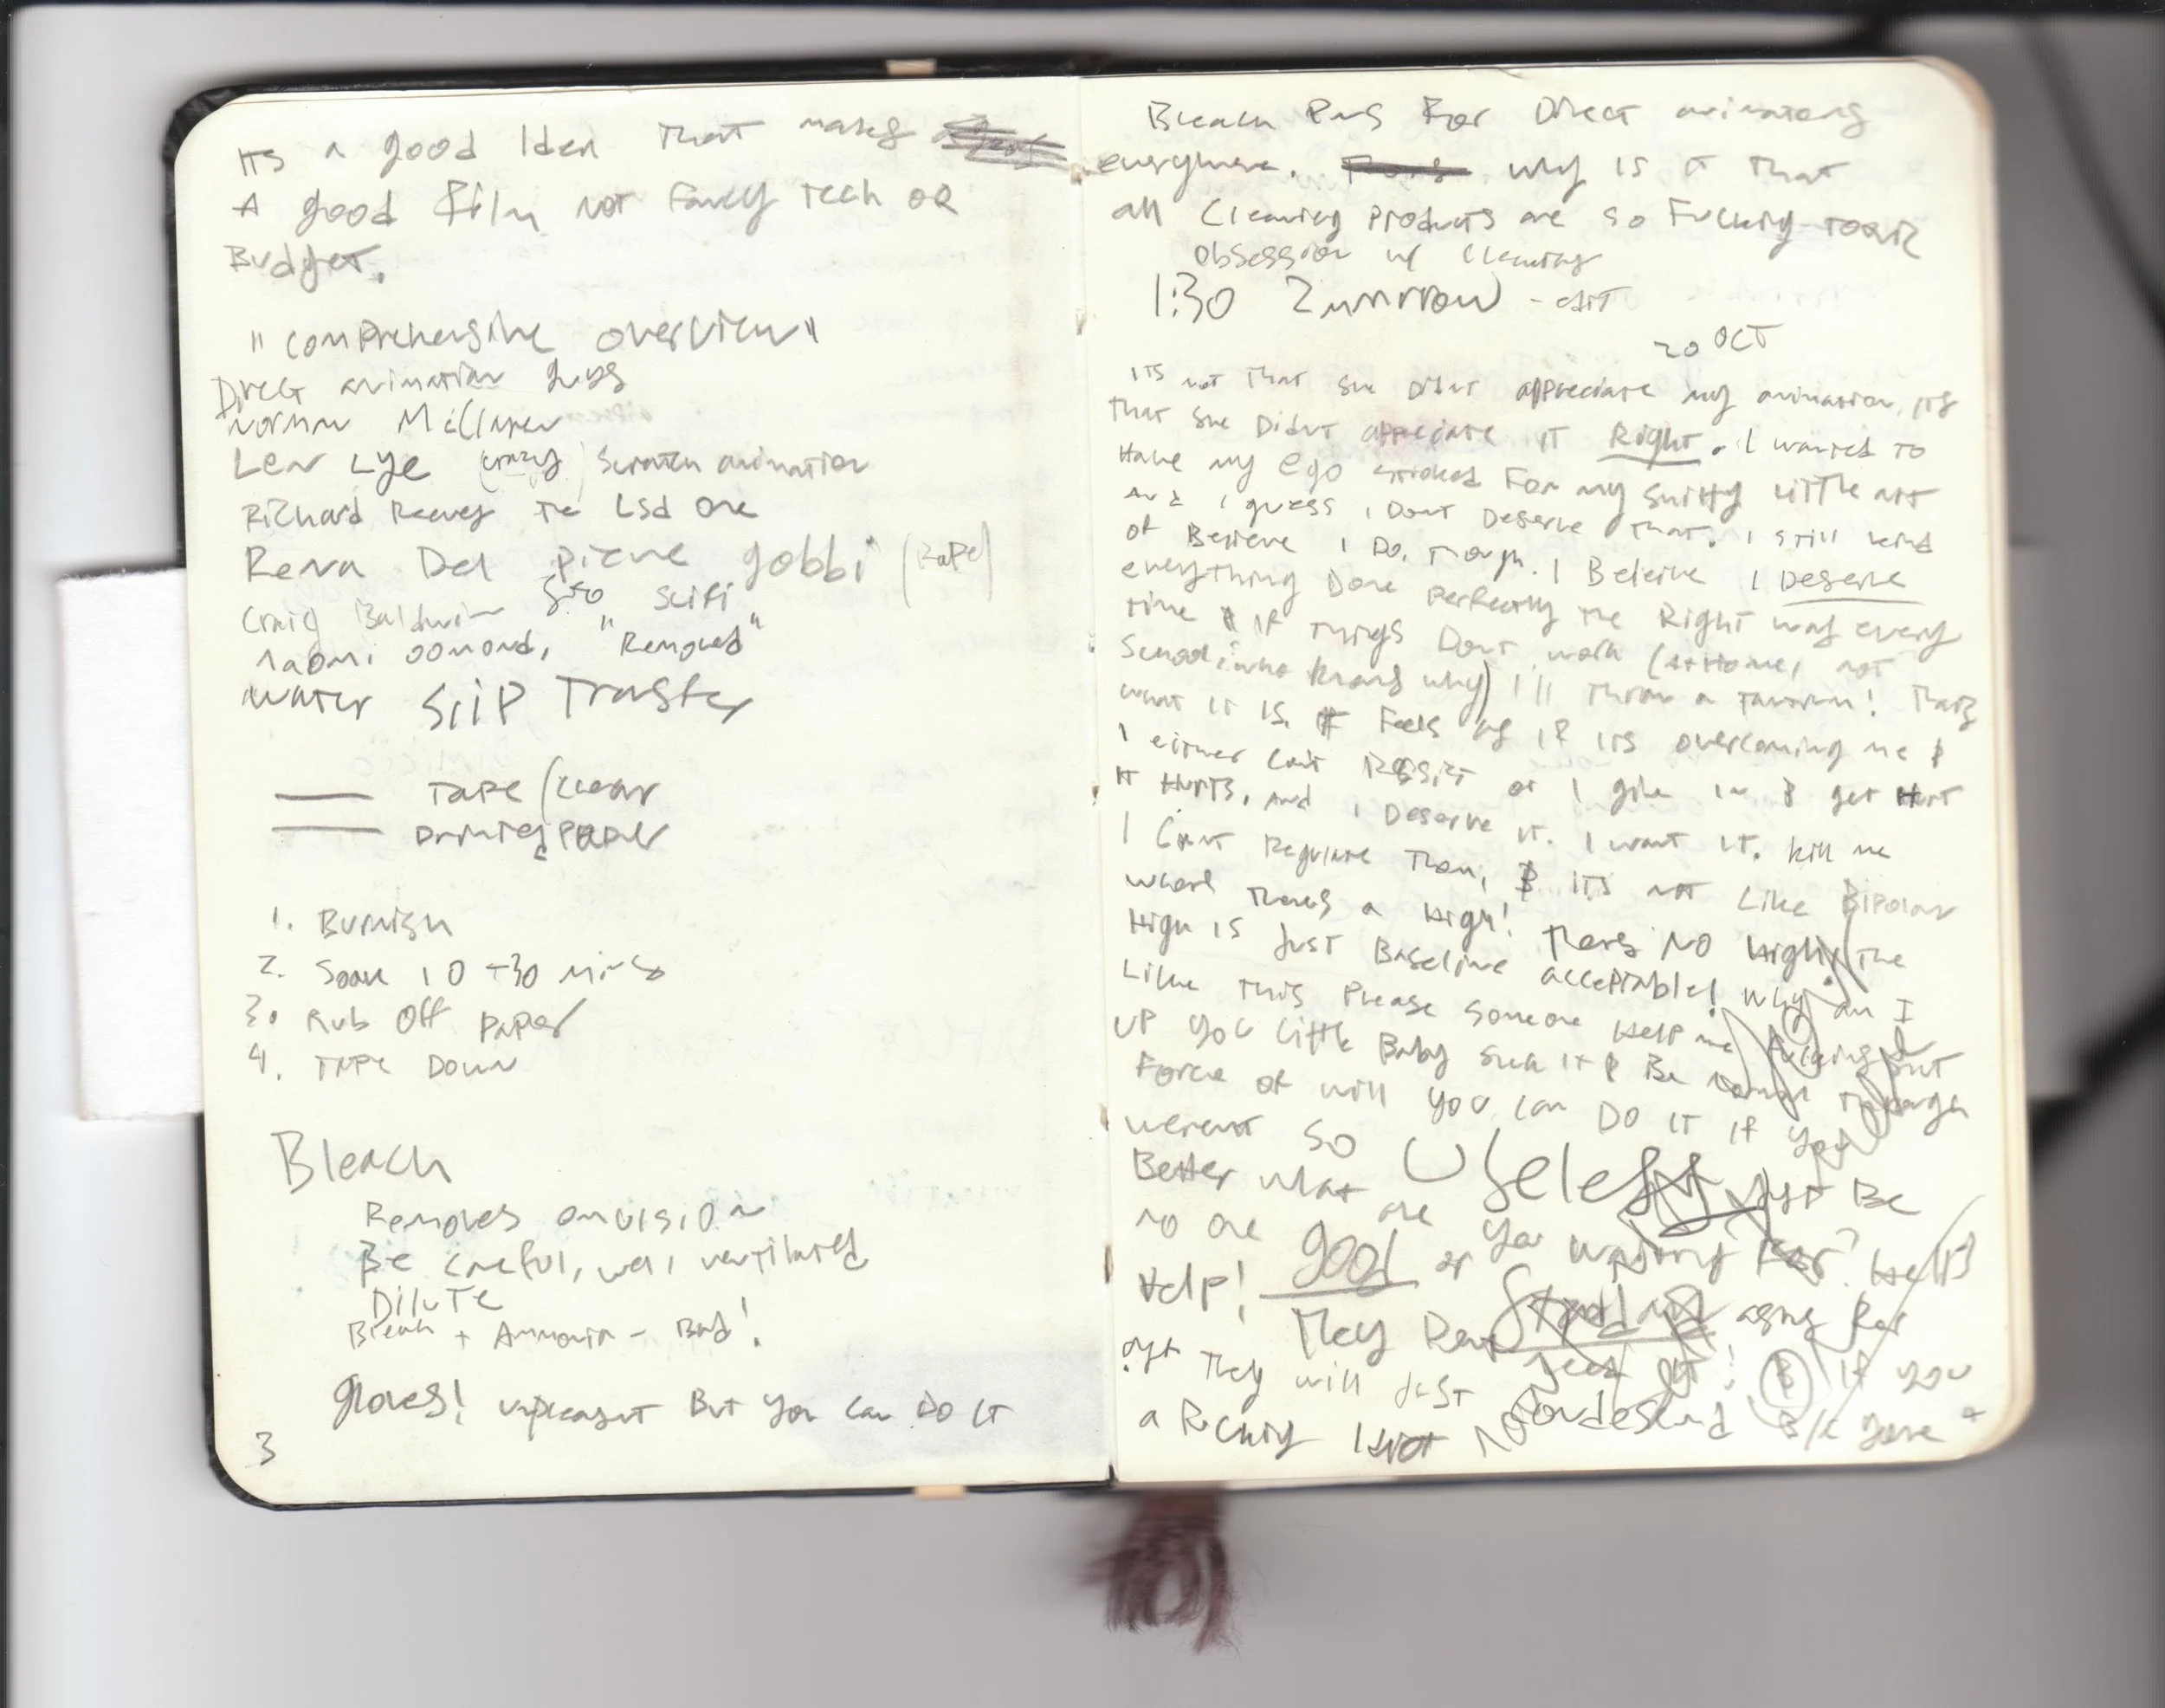 ITS a good Iden that makes
A good film not Fancy Tech OR
Budget.
"Comprehensive overview"
Direct animation guys
Norman McClaren
Len Lye (crazy) scratch animation
Richard Reeves the Lsd one
Rena Del pieve gobbi (Rape)
Craig Baldwin SciFi
naomi "Removed"
water SliP Transfer
TAPE/Clear
Printed PAPer
1. Burnish
2. Soak 10-30 mins
3. Rub Off PAPer
4. TAPE Down
Bleach
Removes emulsion
Be careful, well ventilated
Dilute
Bleach + Ammonia - Bad!
gloves! unpleasant But you can Do it
3
Bleach Pens For Direct animators
everywhere. why is it that
all Cleaning Products are so Fucking toxic
Obsession w/ Cleaning
1:30 2morrow - edit
20 OCT
ITS not That she Didnt appreciate my animation, ITS
That she Didnt appreciate IT Right. I wanted To
Have my ego stroked For my shitty little art
And I guess I Dont Deserve That. I still kind
of Believe I Do, Though. I Beleive I Deserve
everything Done perfectly the Right way every
time & IF Things Dont work (at Home, not
School, who knows why) I'll Throw a Tantrum! Thats
what IT IS. It Feels as IF ITS overcoming me &
I either Cant Resist or I give in & get Hurt
It HURTS, And I Deserve IT. I want IT. kill me
I Cant Regulate Them, & ITS not Like Bipolar
where Theres a High! Theres NO High, The
High is Just Baseline acceptable! Why am I
Like This Please Someone Help me Fucking
UP you little Baby Suck it & Be through
Force of will you can Do IT If you
werent SO Useless Just Be
Better what are you waiting For? Help
no one good or Standard
Help! They Dont asking For
They will Just condescend & if you
a Fucking Idiot B/c youre a